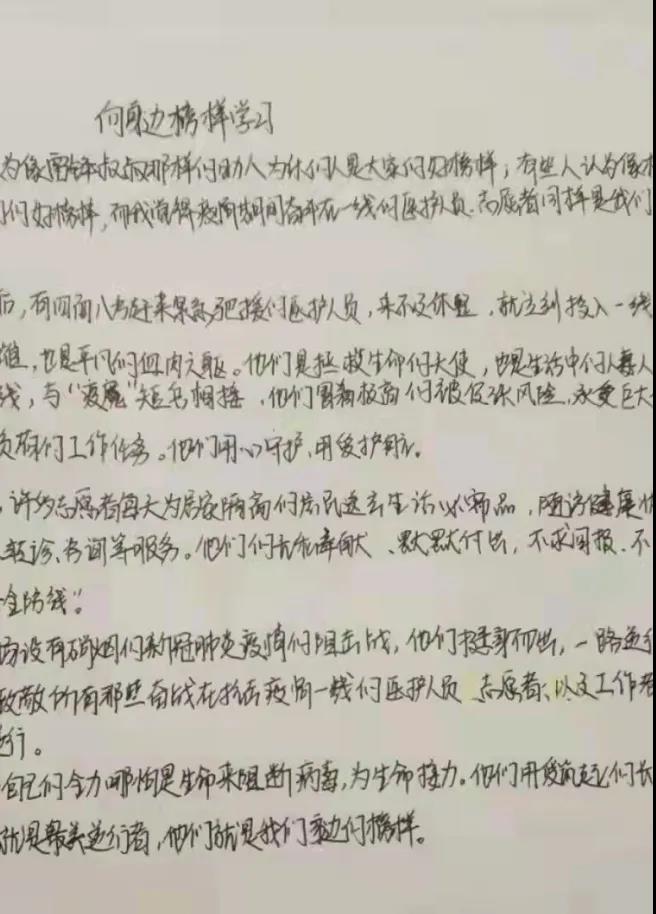 向身边榜样学习
为像雷锋叔叔那样的助人为乐的人是大家的好榜样；有些人认为像
们的好榜样，而我觉得疫情期间奋斗在一线的医护人员、志愿者同样是我们
后，有四面八方赶来紧急驰援的医护人员，来不及休整，就立刻投入一线
雄，也是平凡的血肉之躯。他们是拯救生命的天使，也是生活中的人
线，与“疫魔”短兵相接，他们冒着极高的被感染风险，承受巨大
负荷的工作任务。他们用心守护，用爱护航。
，许多志愿者每天为居家隔离的居民送去生活必需品，随访健康
转诊、咨询等服务。他们的无私奉献、默默付出，不求回报、不
全防线”。
场没有硝烟的新冠肺炎疫情的阻击战，他们挺身而出，一路逆行
致敬所有那些奋战在抗击疫情一线的医护人员、志愿者、以及工作者
行。
自己的全力哪怕是生命来阻断病毒，为生命接力。他们用爱筑起的长
就是最美逆行者，他们就是我们身边的榜样。